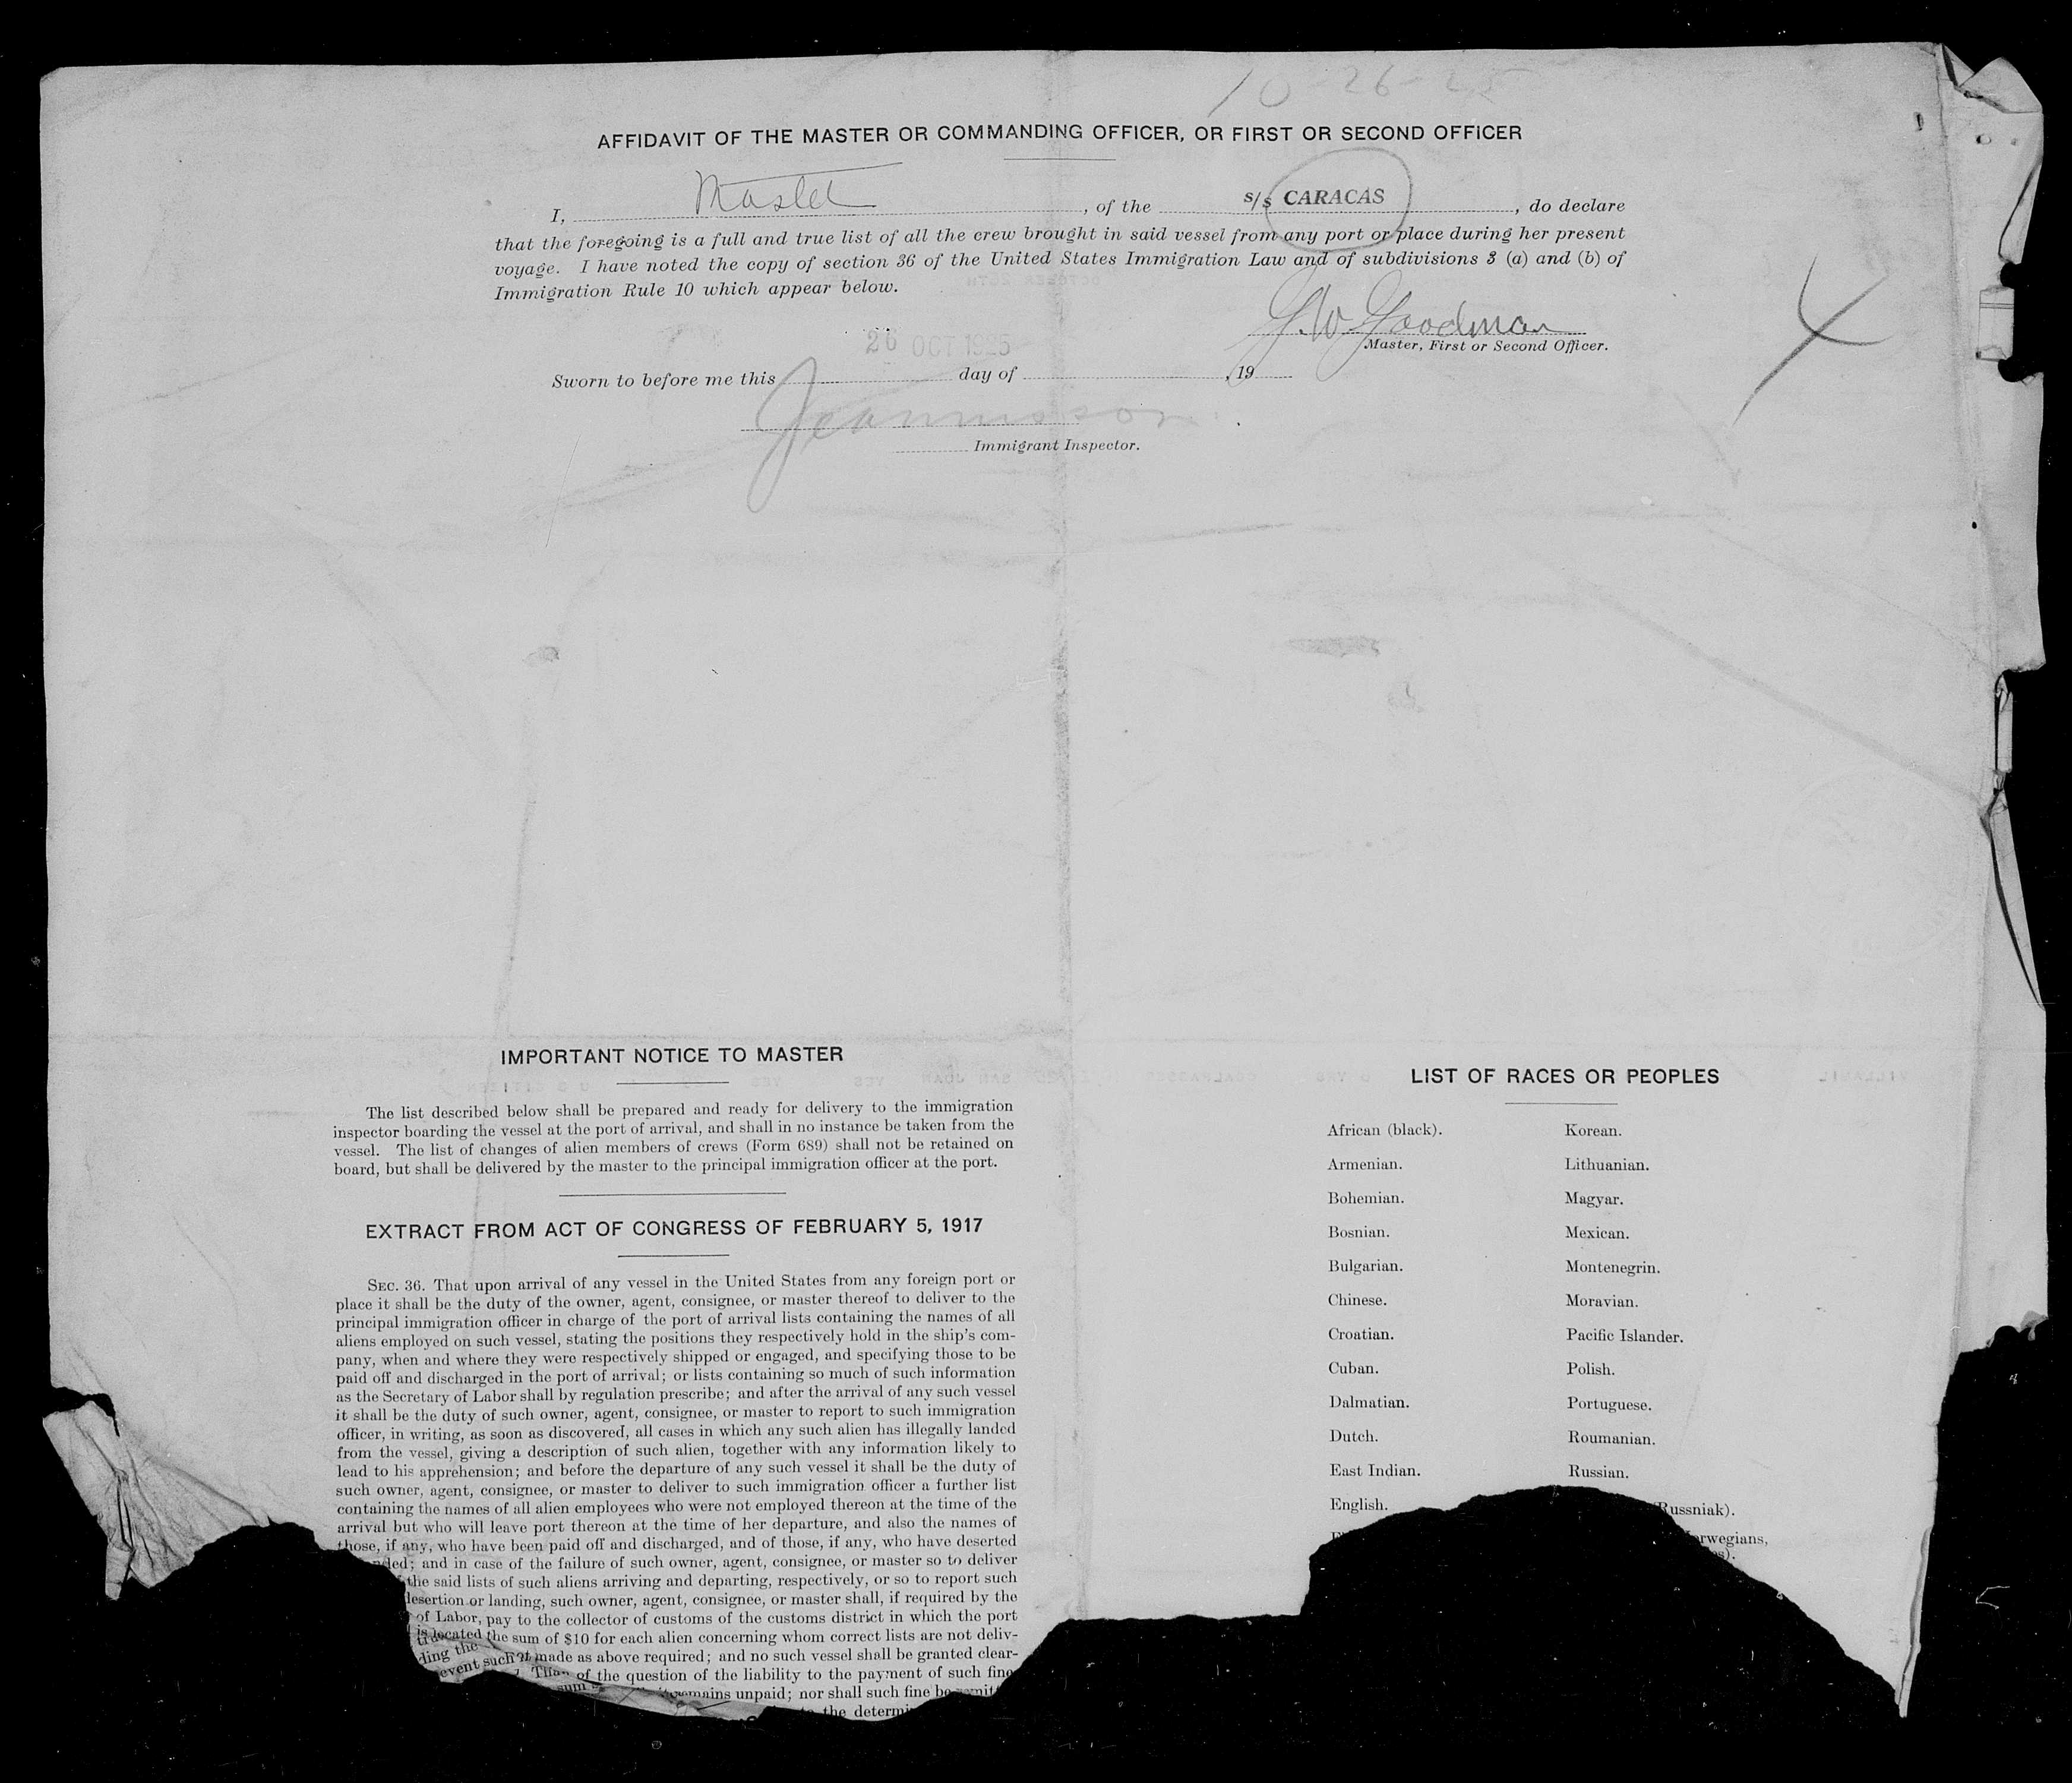 10-26-25
AFFIDAVIT OF THE MASTER OR COMMANDING OFFICER, OR FIRST OR SECOND OFFICER
I, Master, of the s/s CARACAS, do declare
that the foregoing is a full and true list of all the crew brought in said vessel from any port or place during her present
voyage. I have noted the copy of section 36 of the United States Immigration Law and of subdivisions 3 (a) and (b) of
Immigration Rule 10 which appear below.
G.W. Goodman
Master, First or Second Officer.
26 OCT 1925
Sworn to before me this day of , 19
Immigrant Inspector.
IMPORTANT NOTICE TO MASTER
The list described below shall be prepared and ready for delivery to the immigration
inspector boarding the vessel at the port of arrival, and shall in no instance be taken from the
vessel. The list of changes of alien members of crews (Form 689) shall not be retained on
board, but shall be delivered by the master to the principal immigration officer at the port.
EXTRACT FROM ACT OF CONGRESS OF FEBRUARY 5, 1917
SEC. 36. That upon arrival of any vessel in the United States from any foreign port or
place it shall be the duty of the owner, agent, consignee, or master thereof to deliver to the
principal immigration officer in charge of the port of arrival lists containing the names of all
aliens employed on such vessel, stating the positions they respectively hold in the ship's com-
pany, when and where they were respectively shipped or engaged, and specifying those to be
paid off and discharged in the port of arrival; or lists containing so much of such information
as the Secretary of Labor shall by regulation prescribe; and after the arrival of any such vessel
it shall be the duty of such owner, agent, consignee, or master to report to such immigration
officer, in writing, as soon as discovered, all cases in which any such alien has illegally landed
from the vessel, giving a description of such alien, together with any information likely to
lead to his apprehension; and before the departure of any such vessel it shall be the duty of
such owner, agent, consignee, or master to deliver to such immigration officer a further list
containing the names of all alien employees who were not employed thereon at the time of the
arrival but who will leave port thereon at the time of her departure, and also the names of
those, if any, who have been paid off and discharged, and of those, if any, who have deserted
nded; and in case of the failure of such owner, agent, consignee, or master so to deliver
the said lists of such aliens arriving and departing, respectively, or so to report such
desertion or landing, such owner, agent, consignee, or master shall, if required by the
of Labor, pay to the collector of customs of the customs district in which the port
is located the sum of $10 for each alien concerning whom correct lists are not deliv-
made as above required; and no such vessel shall be granted clear-
ding the
event such
of the question of the liability to the payment of such fine
sum
mains unpaid; nor shall such fine be
the determi
LIST OF RACES OR PEOPLES
African (black). Korean.
Armenian. Lithuanian.
Bohemian. Magyar.
Bosnian. Mexican.
Bulgarian. Montenegrin.
Chinese. Moravian.
Croatian. Pacific Islander.
Cuban. Polish.
Dalmatian. Portuguese.
Dutch. Roumanian.
East Indian. Russian.
English. Russniak).
rwegians,